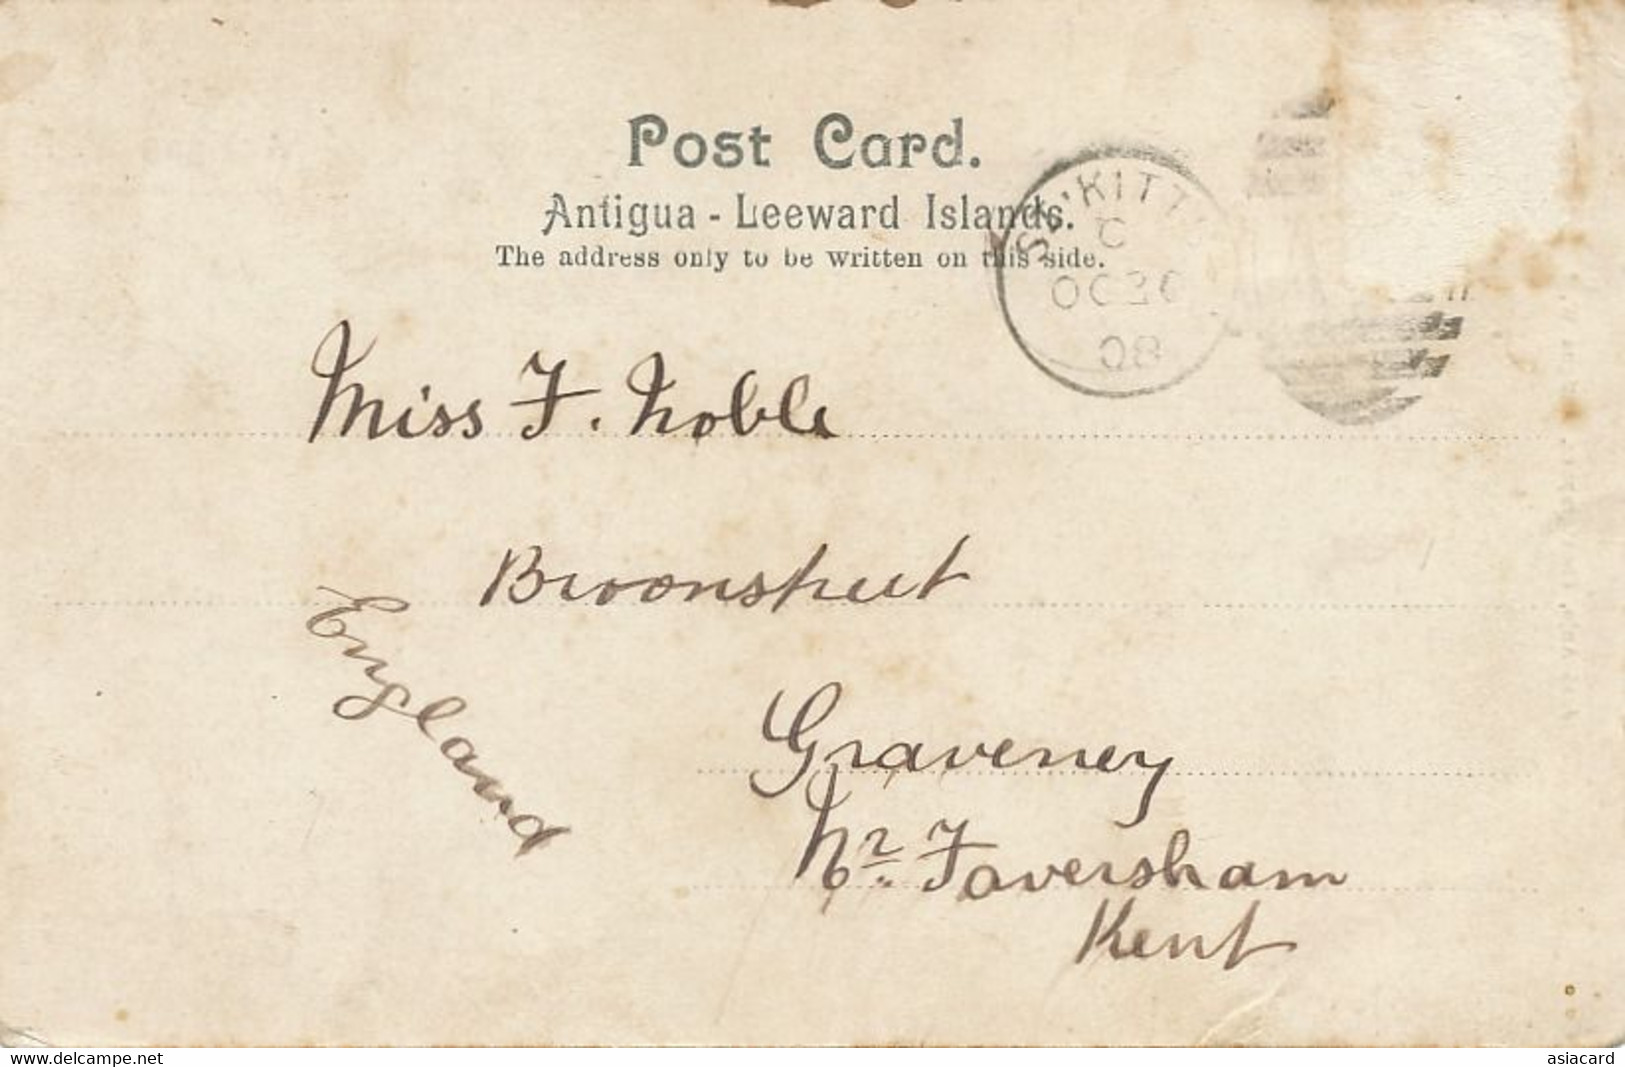 Post Card.
Antigua - Leeward Islands.
The address only to be written on this side.
ST. KITT
C
OC 26
08
Miss F. Noble
Broomstreet
Graveney
Nr. Faversham
Kent
England
www.delcampe.net
asiacard